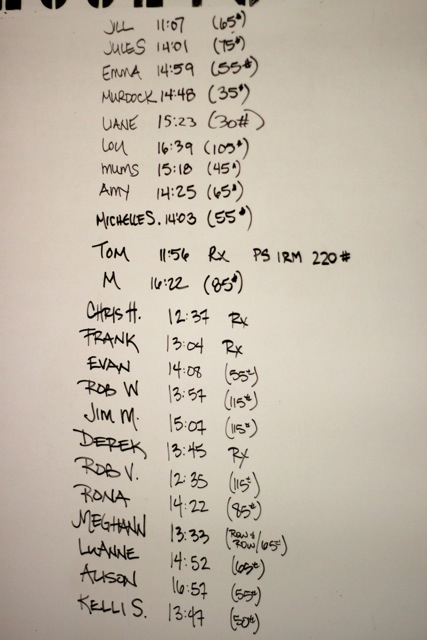 JILL 11:07 (65#)
JULES 14:01 (75#)
EMMA 14:59 (55#)
MURDOCK 14:48 (35#)
LIANE 15:23 (30#)
LOU 16:39 (105#)
MUMS 15:18 (45#)
AMY 14:25 (65#)
MICHELLE S. 14:03 (55#)
TOM 11:56 Rx PS 1RM 220#
M 16:22 (85#)
CHRIS H. 12:37 Rx
FRANK 13:04 Rx
EVAN 14:08 (55#)
ROB W 13:57 (115#)
JIM M. 15:07 (115#)
DEREK 13:45 Rx
ROB V. 12:35 (115#)
RONA 14:22 (85#)
MEGHANN 13:33 (ROW + ROW/65#)
LUANNE 14:52 (65#)
ALISON 16:57 (55#)
KELLI S. 13:47 (50#)